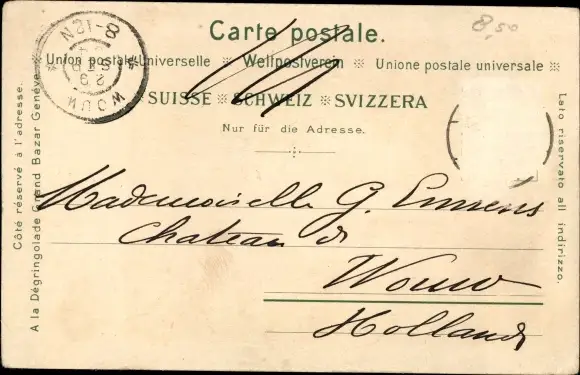 Carte postale.
Union postale universelle ※ Weltpostverein ※ Unione postale universale ※
※ SUISSE ※ SCHWEIZ ※ SVIZZERA
Nur für die Adresse.
8,50
8-12N
WOUW
Mademoiselle G.
Chateau de
Wouw
Hollande
Côté réservé à l'adresse.
A la Dégringolade Grand Bazar Genève.
Lato riservato all indirizzo.